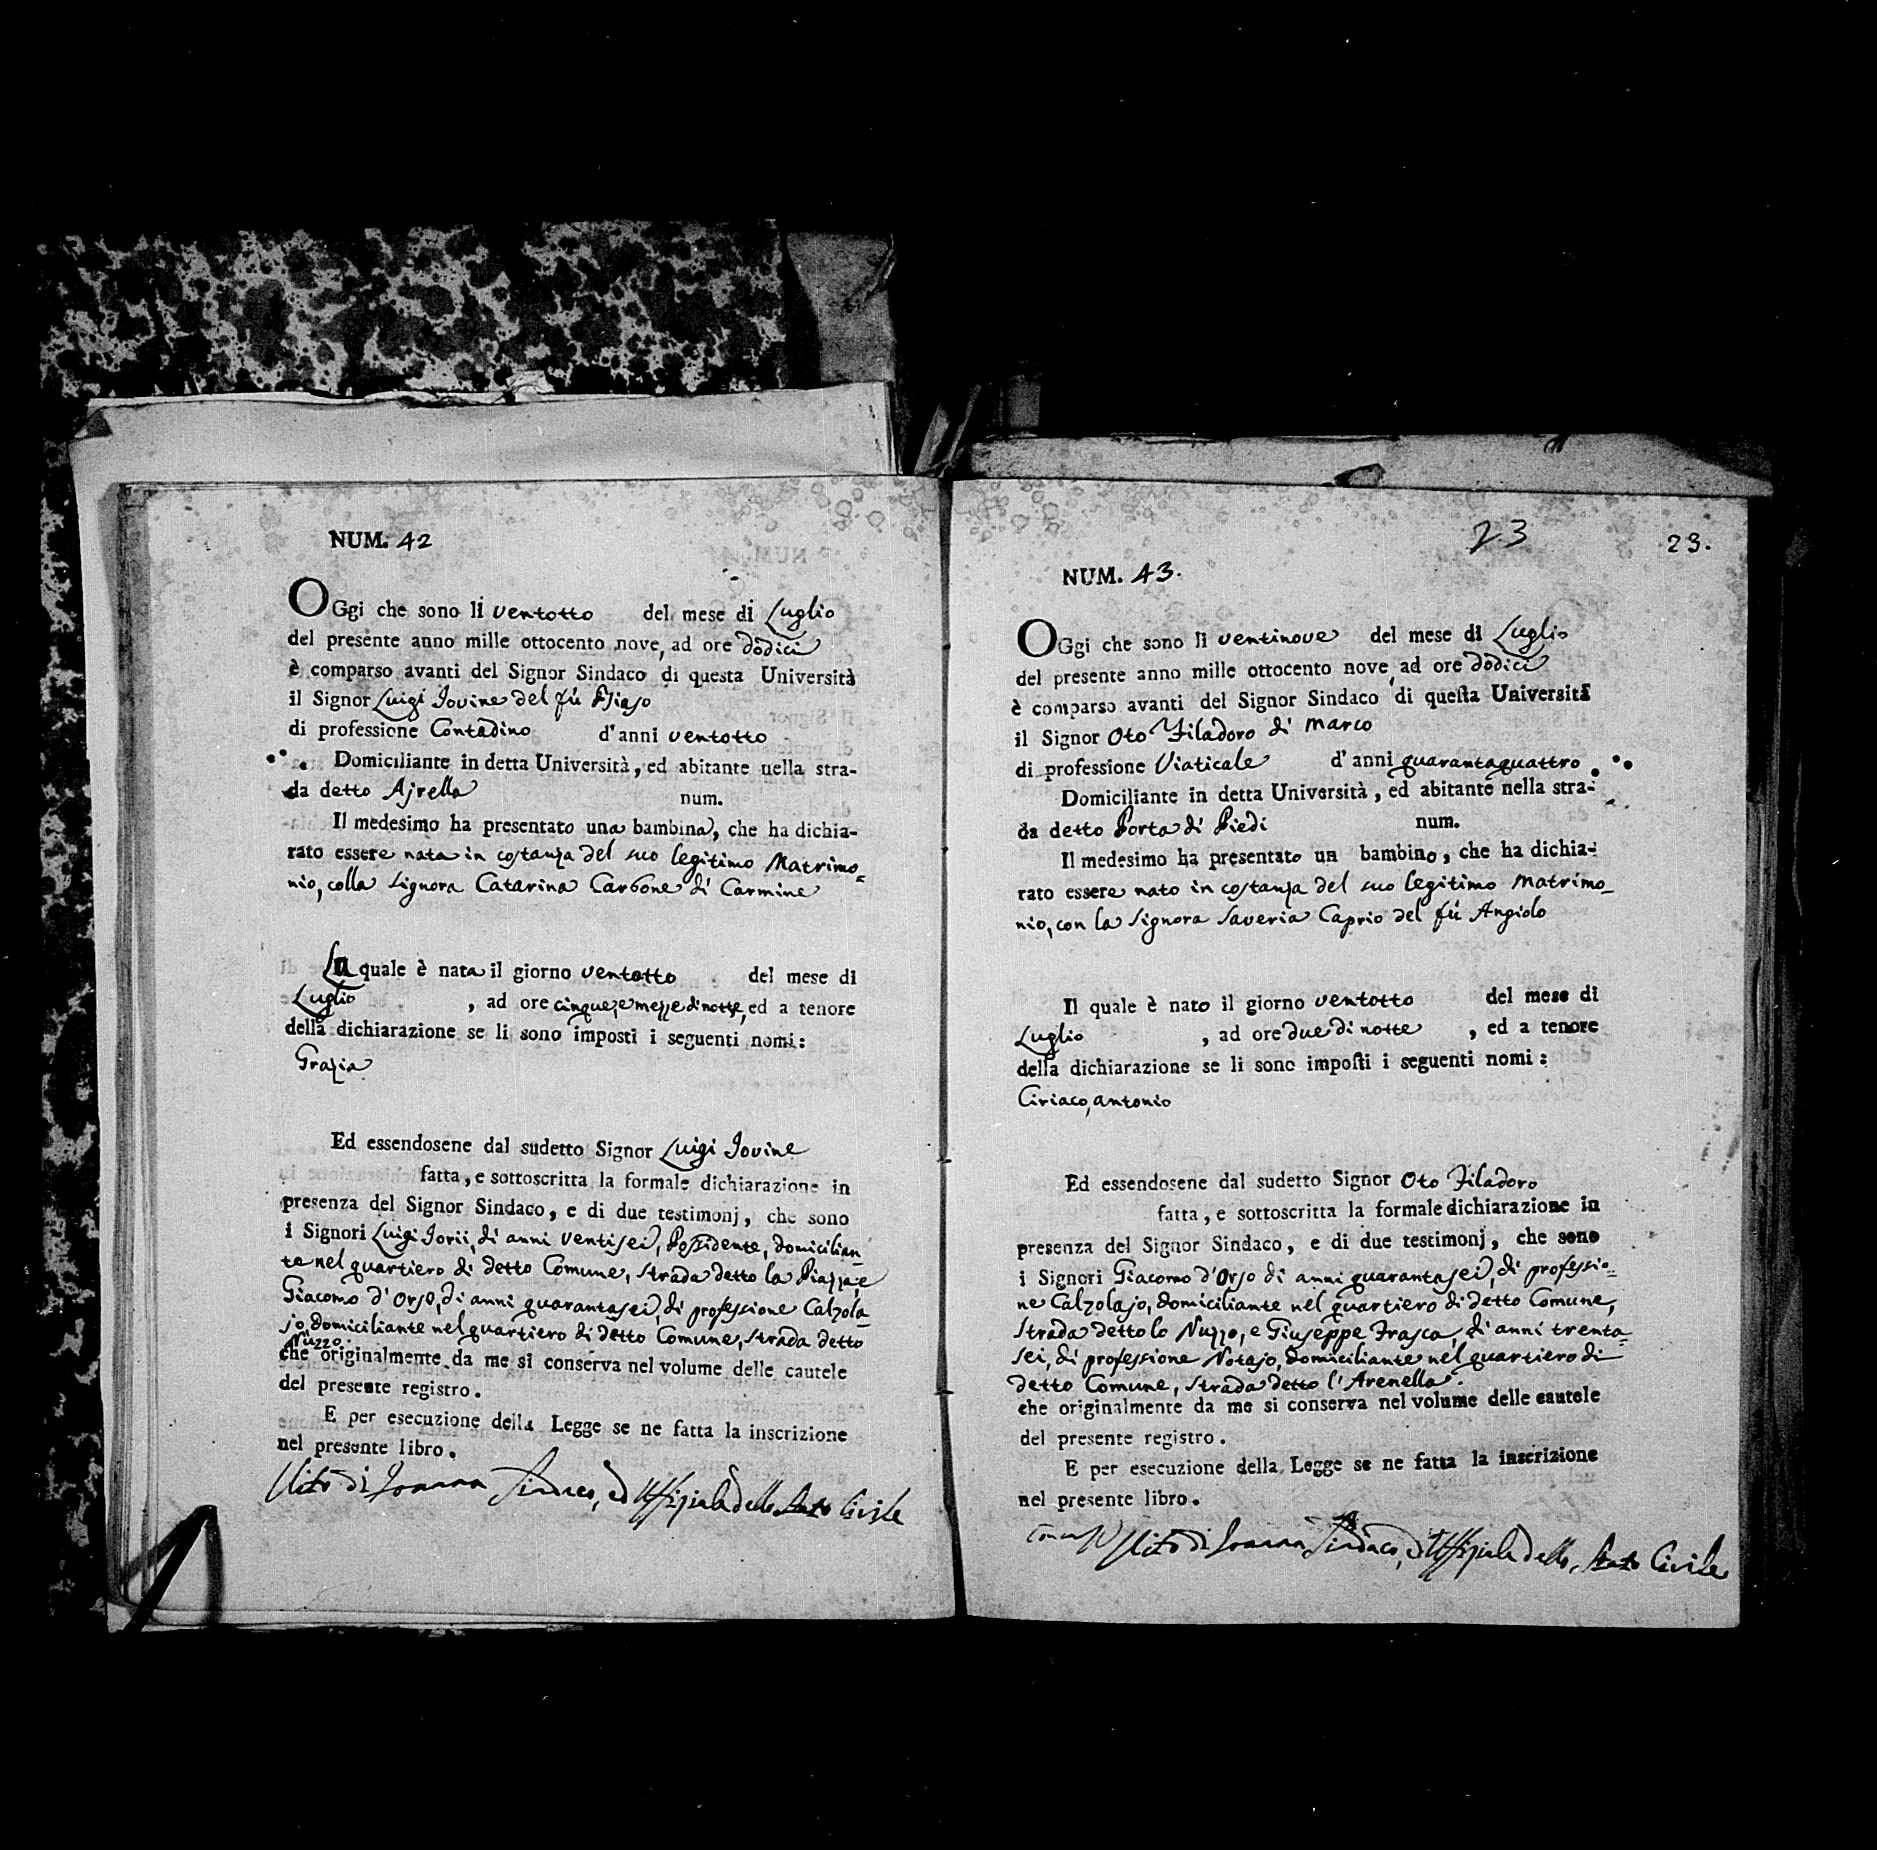 NUM. 42
OGgi che sono li ventotto del mese di Luglio
del presente anno mille ottocento nove, ad ore dodici
è comparso avanti del Signor Sindaco di questa Università
il Signor Luigi Iovine del fù
di professione Contadino d'anni ventotto
Domiciliante in detta Università, ed abitante nella stra-
da detto Ajrella num.
Il medesimo ha presentato una bambina, che ha dichia-
rato essere nata in costanza del suo legitimo Matrimo=
nio, colla Signora Catarina Carbone di Carmine
La quale è nata il giorno ventotto del mese di
Luglio , ad ore cinque, e mezze di notte, ed a tenore
della dichiarazione se li sono imposti i seguenti nomi:
Grazia
Ed essendosene dal sudetto Signor Luigi Iovine
fatta, e sottoscritta la formale dichiarazione in
presenza del Signor Sindaco, e di due testimonj, che sono
i Signori Luigi Iorii, di anni ventisei, Possidente, domicilian
te nel quartiero di detto Comune, strada detto la Piazza, e
Giacomo d'Orso, di anni quarantasei, di professione Calzola=
jo, domiciliante nel quartiero di detto Comune, strada detto
Nuzzo.
che originalmente da me si conserva nel volume delle cautele
del presente registro.
E per esecuzione della Legge se ne fatta la inscrizione
nel presente libro.
Vito di Ioanna Sindaco, ed Uffiziale dello Stato Civile
23 23.
NUM. 43.
OGgi che sono li ventinove del mese di Luglio
del presente anno mille ottocento nove, ad ore dodici
è comparso avanti del Signor Sindaco di questa Università
il Signor Oto Filadoro di Marco
di professione Viaticale d'anni quarantaquattro
Domiciliante in detta Università, ed abitante nella stra-
da detto Porta di Piedi num.
Il medesimo ha presentato un bambino, che ha dichia-
rato essere nato in costanza del suo legitimo Matrimo=
nio, con la Signora Saveria Caprio del fù Angiolo
Il quale è nato il giorno ventotto del mese di
Luglio , ad ore due di notte , ed a tenore
della dichiarazione se li sono imposti i seguenti nomi:
Ciriaco, antonio
Ed essendosene dal sudetto Signor Oto Filadoro
fatta, e sottoscritta la formale dichiarazione in
presenza del Signor Sindaco, e di due testimonj, che sono
i Signori Giacomo d'Orso di anni quarantasei, di professio=
ne Calzolajo, domiciliante nel quartiero di detto Comune,
strada detto lo Nuzzo, e Giuseppe Frasca, di anni trenta=
sei, di professione Notajo, domiciliante nel quartiero di
detto Comune, strada detto l'Arenella.
che originalmente da me si conserva nel volume delle cautele
del presente registro.
E per esecuzione della Legge se ne fatta la inscrizione
nel presente libro.
Vito di Ioanna Sindaco, ed Uffiziale dello Stato Civile